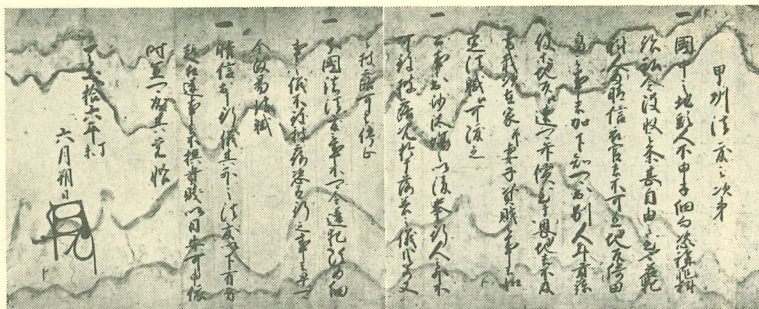 甲州法度之次第
一 國中之地頭人不申子細恣稱罪科
跡私令没收之條甚自由之至也若犯
科人為晴信被官者不可有地頭綺田
畠之事者加下知可出別人年貢諸
役等地頭へ速可弁償至于恩地者不及
書載次在家并妻子資財之事者如
定法職へ可渡之
一 公事出沙汰場以後奉行人之外不
可致披露況於落着之儀哉若又
之披露可令停止
一 分國諸法度之事不可令違犯
事之儀不致披露恣
令改易彼職
一 晴信於行儀其外之法度以下有旨
趣相違事者不撰貴賤以目安可申依
時宜可成其覚悟
天文拾六年丁未
六月朔日